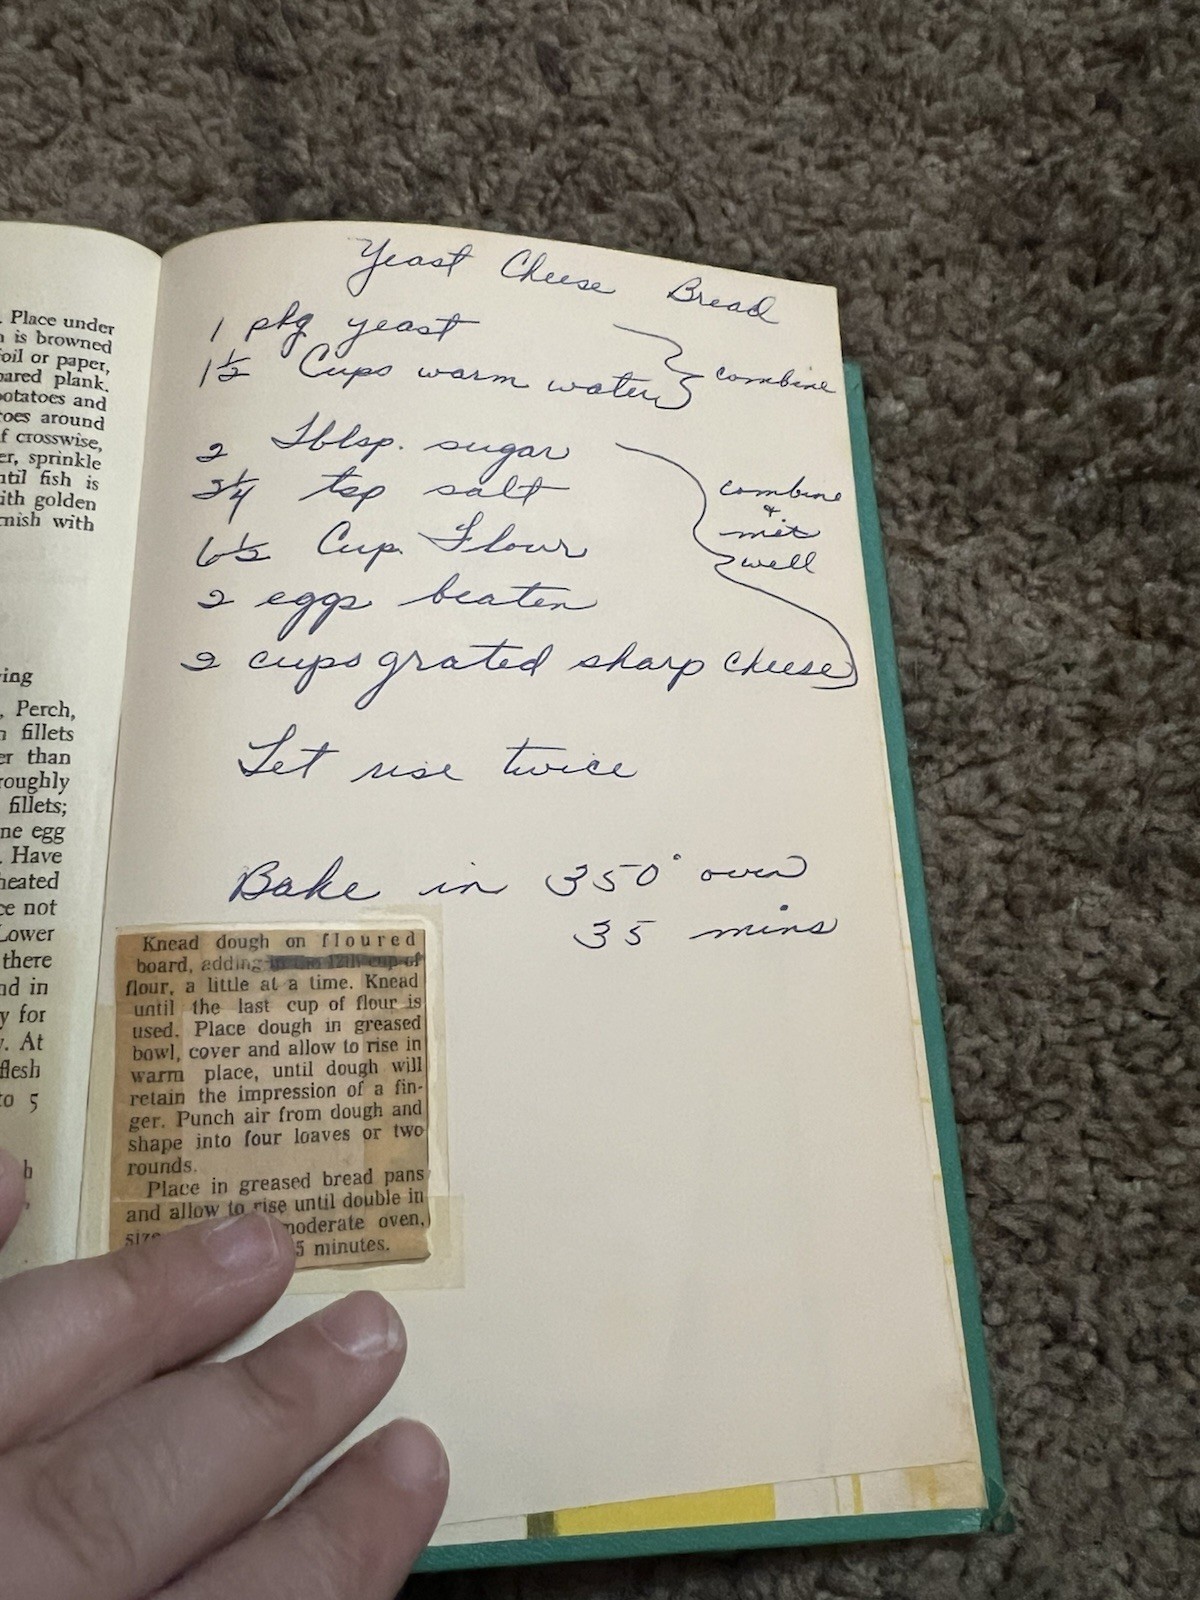 . Place under
is browned
foil or paper,
pared plank.
potatoes and
toes around
f crosswise,
er, sprinkle
ntil fish is
ith golden
rnish with
ing
, Perch,
fillets
er than
roughly
fillets;
ne egg
. Have
heated
ce not
Lower
there
nd in
y for
. At
flesh
to 5
Yeast Cheese Bread
1 pkg yeast
1½ Cups warm water
combine
2 Tblsp. sugar
tsp salt
6½ Cup. Flour
2 eggs beaten
2 cups grated sharp cheese
combine
&
mix
well
Let rise twice
Bake in 350° oven
35 mins
Knead dough on floured
board, adding cup of
flour, a little at a time. Knead
until the last cup of flour is
used. Place dough in greased
bowl, cover and allow to rise in
warm place, until dough will
retain the impression of a fin-
ger. Punch air from dough and
shape into four loaves or two
rounds.
Place in greased bread pans
and allow to rise until double in
size moderate oven,
5 minutes.